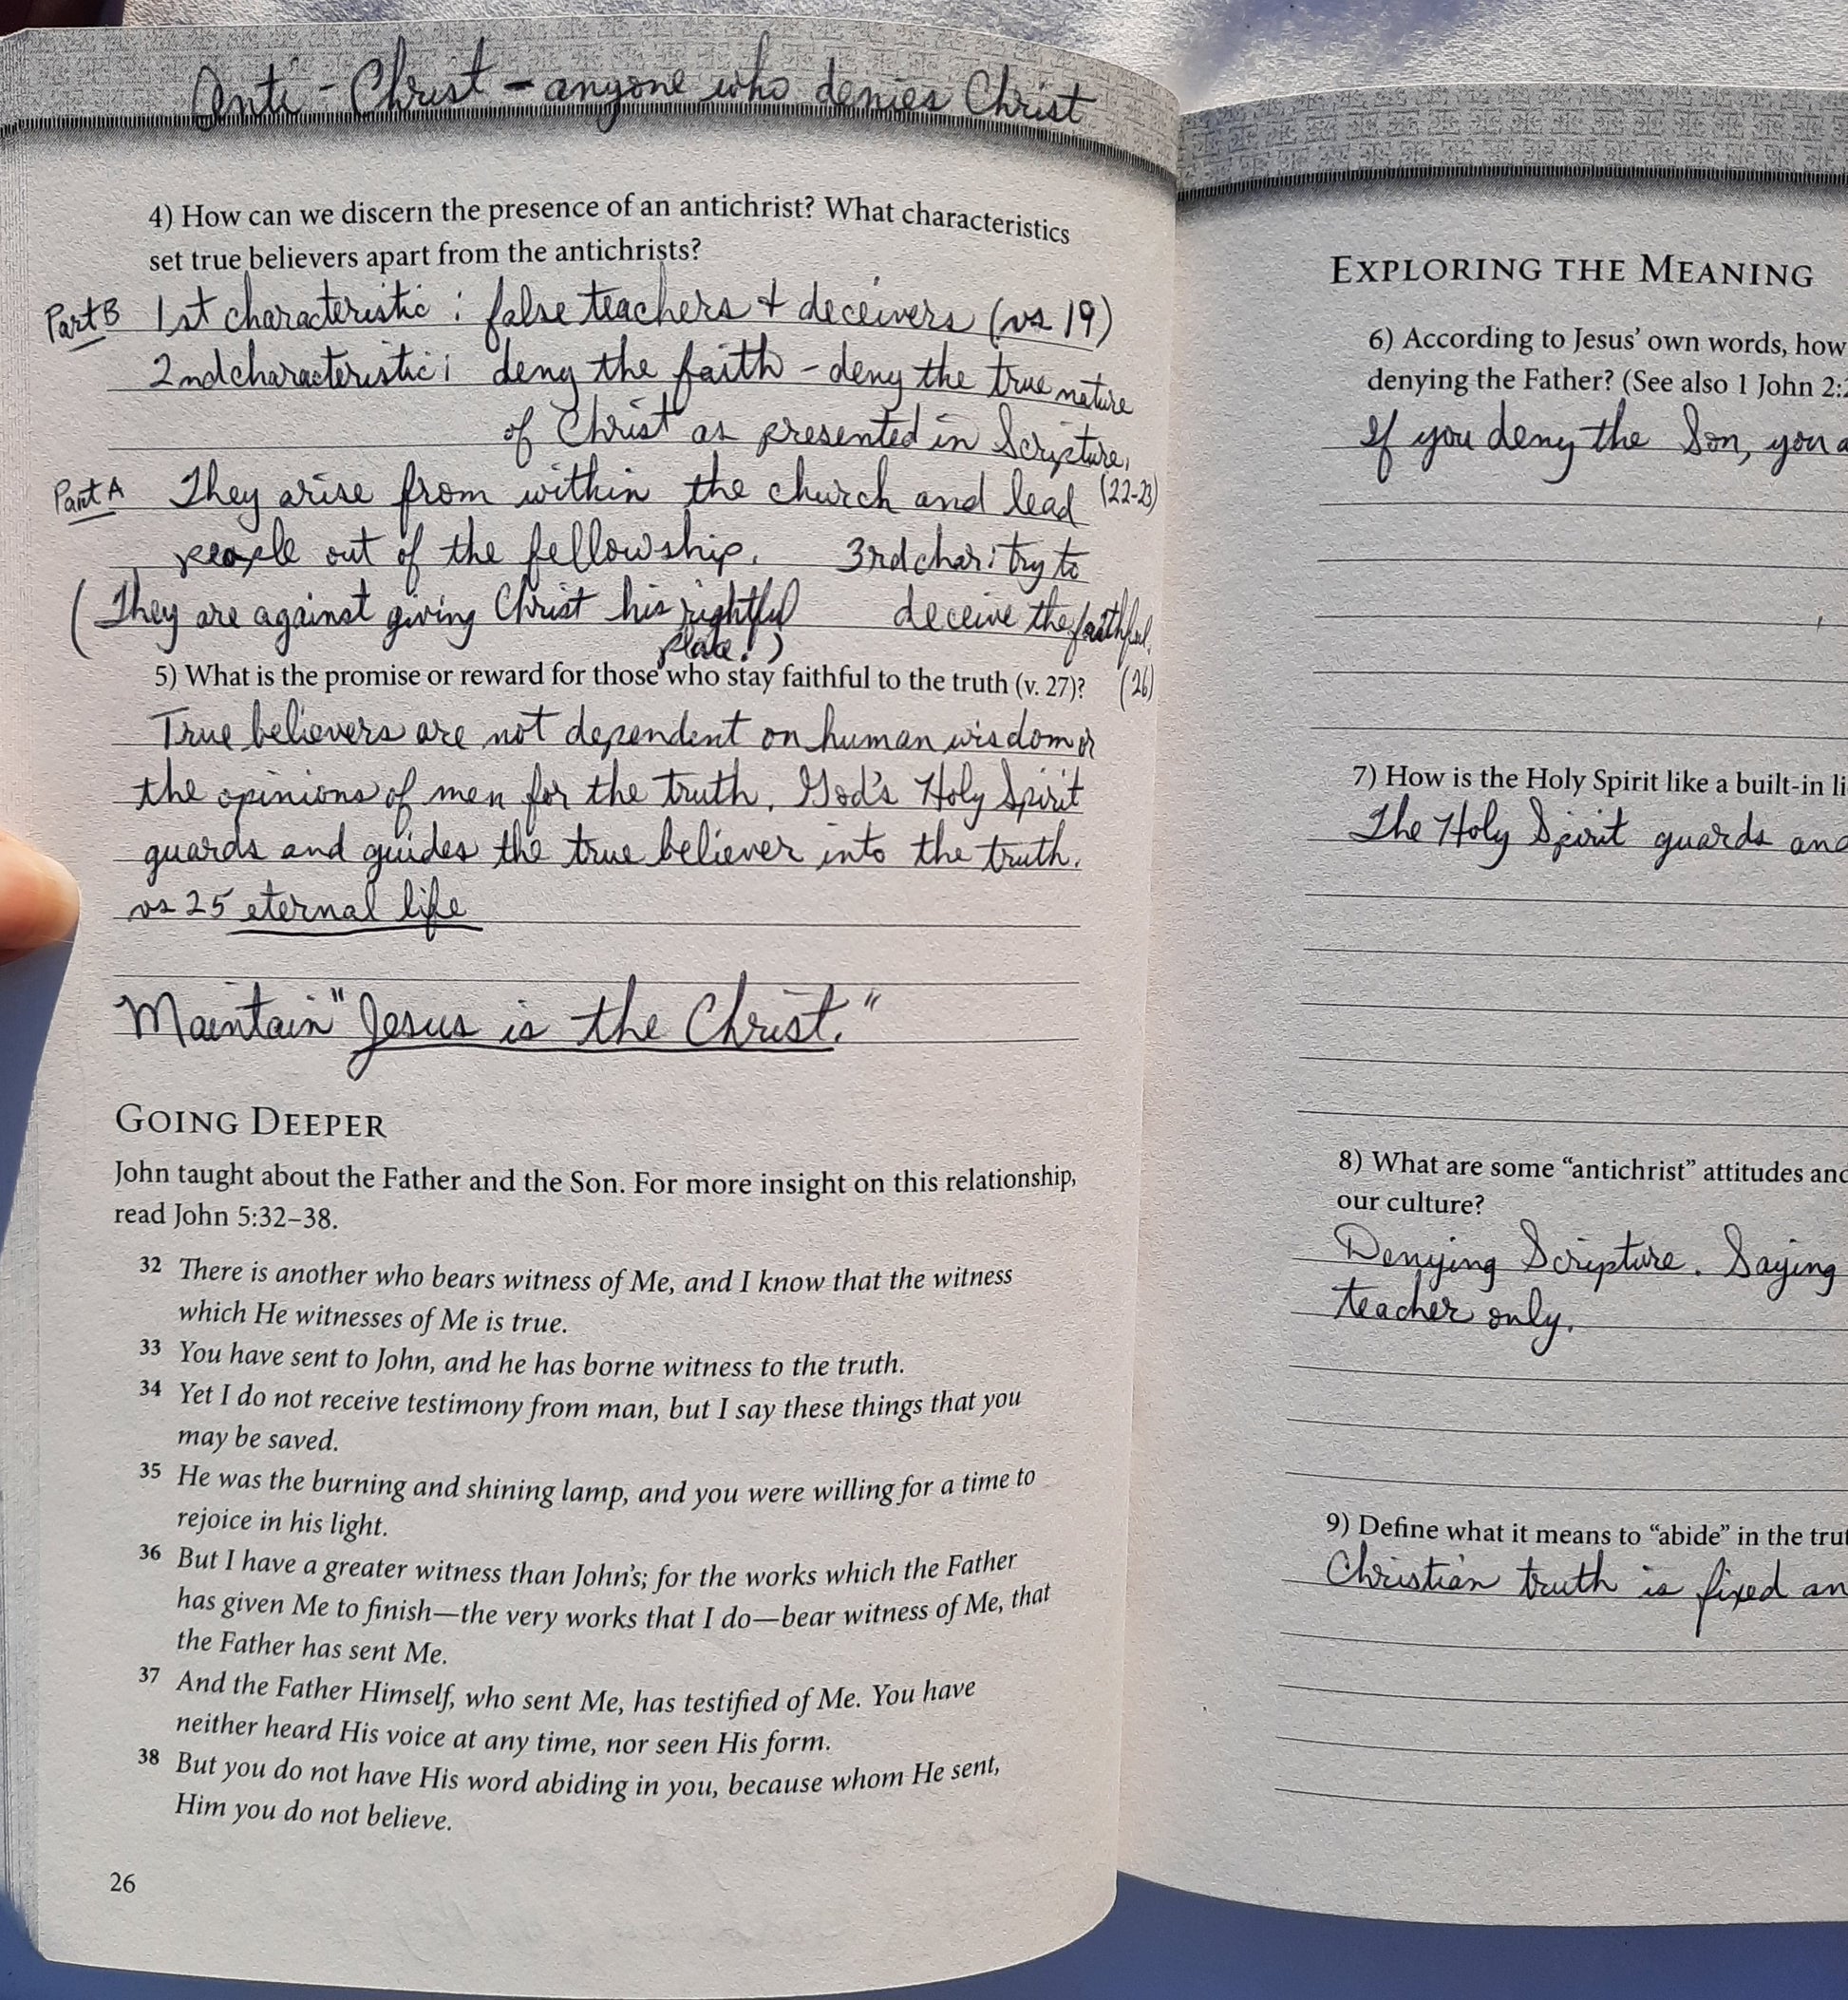 Anti-Christ - anyone who denies Christ
4) How can we discern the presence of an antichrist? What characteristics
set true believers apart from the antichrists?
Part B 1st characteristic: false teachers + deceivers (vs 19)
2nd characteristic: deny the faith - deny the true nature
of Christ as presented in Scripture.
(22-23)
Part A They arise from within the church and lead
people out of the fellowship. 3rd char: try to
(They are against giving Christ his rightful deceive the faithful.
place!) (26)
5) What is the promise or reward for those who stay faithful to the truth (v. 27)?
True believers are not dependent on human wisdom or
the opinions of men for the truth. God's Holy Spirit
guards and guides the true believer into the truth.
vs 25 eternal life
Maintain "Jesus is the Christ."
GOING DEEPER
John taught about the Father and the Son. For more insight on this relationship,
read John 5:32–38.
32 There is another who bears witness of Me, and I know that the witness
which He witnesses of Me is true.
33 You have sent to John, and he has borne witness to the truth.
34 Yet I do not receive testimony from man, but I say these things that you
may be saved.
35 He was the burning and shining lamp, and you were willing for a time to
rejoice in his light.
36 But I have a greater witness than John's; for the works which the Father
has given Me to finish—the very works that I do—bear witness of Me, that
the Father has sent Me.
37 And the Father Himself, who sent Me, has testified of Me. You have
neither heard His voice at any time, nor seen His form.
38 But you do not have His word abiding in you, because whom He sent,
Him you do not believe.
26
EXPLORING THE MEANING
6) According to Jesus' own words, how
denying the Father? (See also 1 John 2:
If you deny the Son, you
7) How is the Holy Spirit like a built-in
The Holy Spirit guards and
8) What are some "antichrist" attitudes and
our culture?
Denying Scripture. Saying
teacher only.
9) Define what it means to "abide" in the
Christian truth is fixed